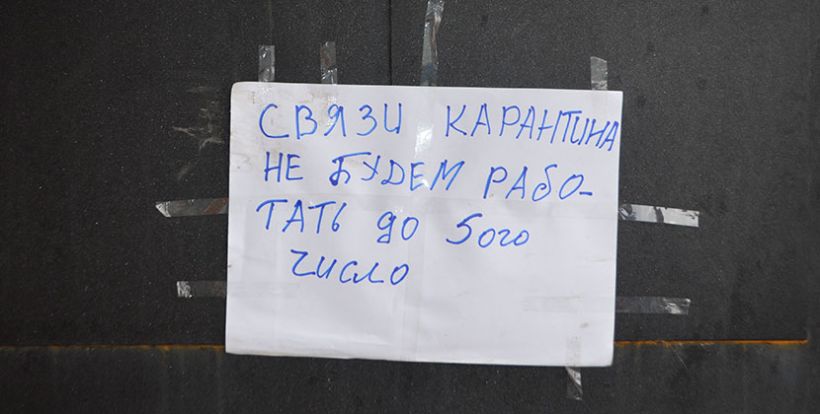 СВЯЗИ КАРАНТИНА
НЕ БУДЕМ РАБО-
ТАТЬ до 5ого
число